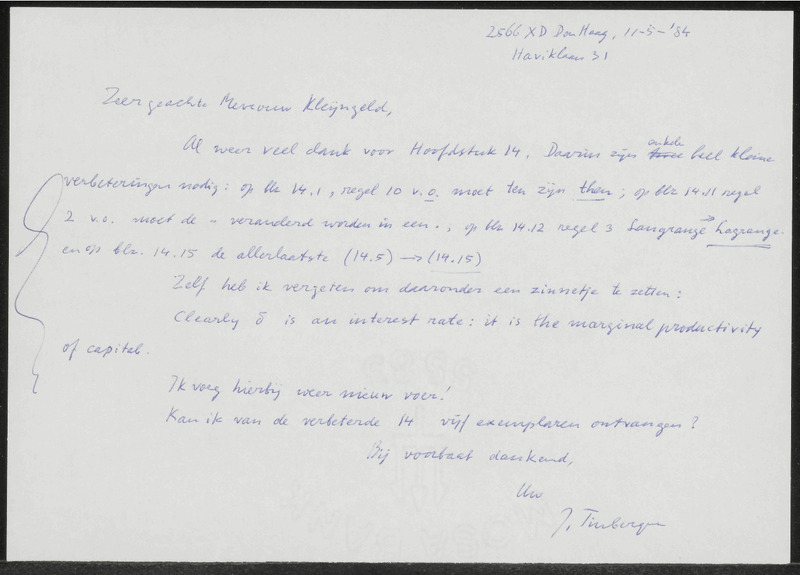 2566 XD Den Haag, 11-5-'84
Haviklaan 31
Zeer geachte Mevrouw Kleijngeld,
Al weer veel dank voor Hoofdstuk 14. Daarin zijn enkele heel kleine
verbeteringen nodig: op blz 14.1, regel 10 v.o. moet ten zijn then; op blz 14.11 regel
2 v.o. moet de - veranderd worden in een . , op blz 14.12 regel 3 Langrange → Lagrange.
en op blz. 14.15 de allerlaatste (14.5) → (14.15)
Zelf heb ik vergeten om daaronder een zinnetje te zetten:
Clearly δ is an interest rate: it is the marginal productivity
of capital.
Ik voeg hierbij weer nieuw voer!
Kan ik van de verbeterde 14 vijf exemplaren ontvangen?
Bij voorbaat dankend,
Uw
J. Tinbergen